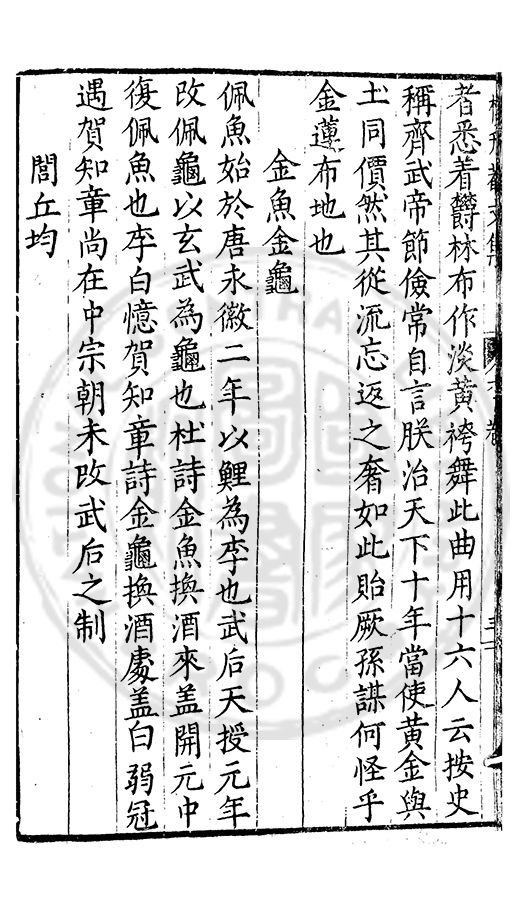 者悉着欝林布作淡黃袴舞此曲用十六人云按史
稱齊武帝節儉常自言朕治天下十年當使黃金與
土同價然其從流忘返之奢如此貽厥孫謀何怪乎
金蓮布地也
金魚金龜
佩魚始於唐永徽二年以鯉為李也武后天授元年
改佩龜以玄武為龜也杜詩金魚換酒來盖開元中
復佩魚也李白憶賀知章詩金龜換酒處盖白弱冠
遇賀知章尚在中宗朝未改武后之制
閭丘均